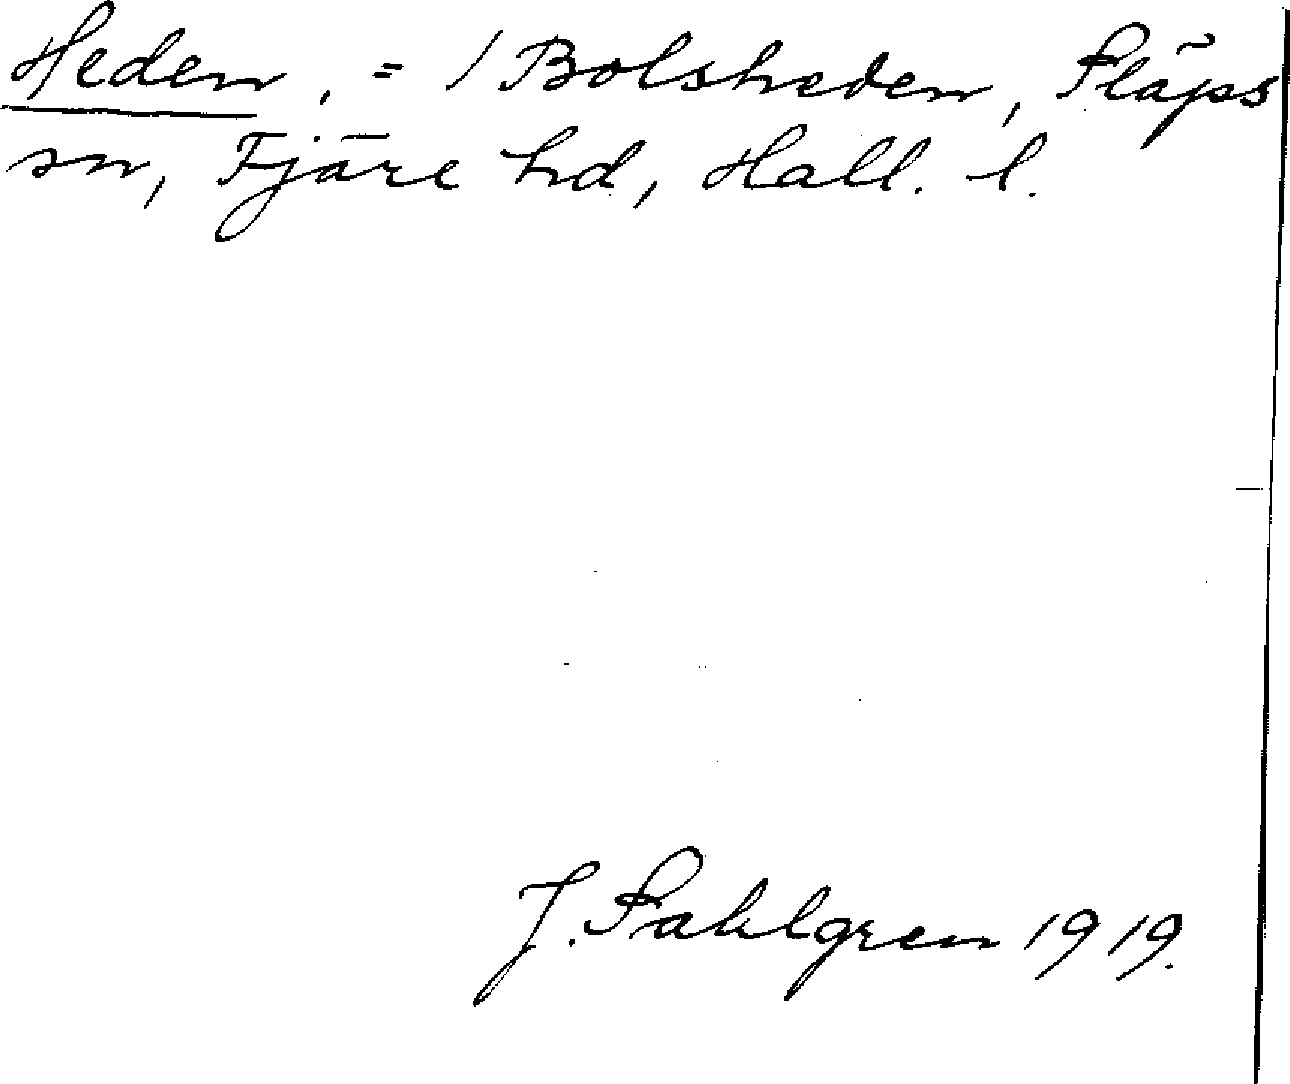 Heden, = / Bolsheden, Släps
sn, Fjäre hd, Hall. l.
J. Sahlgren 1919.